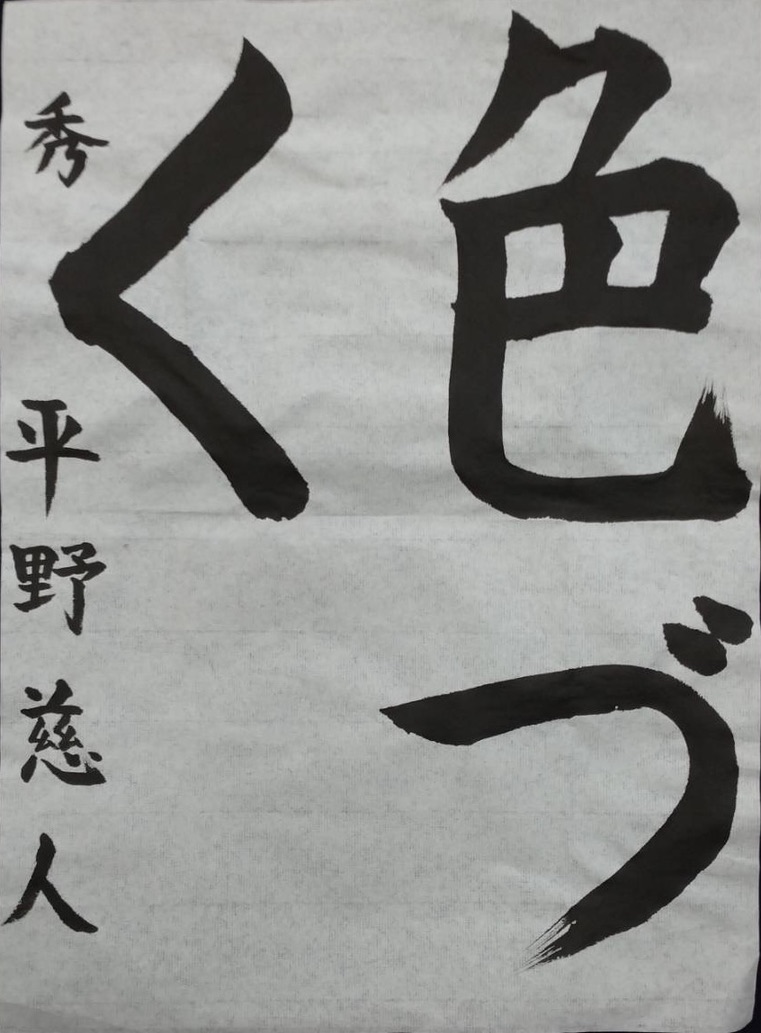 色づ
く
秀 平野慈人